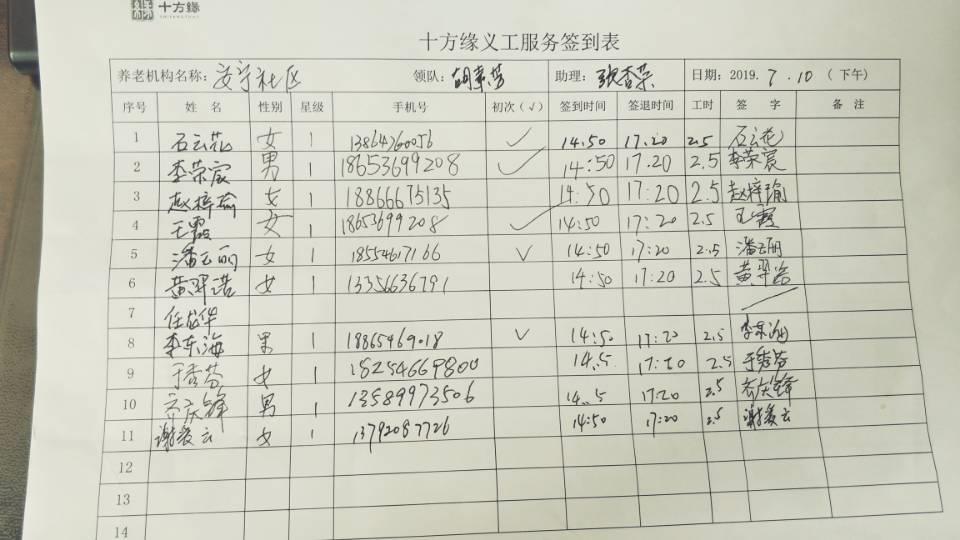 十方缘
十方缘义工服务签到表
养老机构名称: 安宁社区 领队: 助理: 张杏荣 日期: 2019.7.10 (下午)
序号 姓名 性别 星级 手机号 初次(√) 签到时间 签退时间 工时 签字 备注
1 石云花 女 1 13864760056 √ 14:50 17:20 2.5 石云花
2 李荣宸 男 1 18653699208 √ 14:50 17:20 2.5 李荣宸
3 赵梓瑜 女 1 18866675135 14:50 17:20 2.5 赵梓瑜
4 王霞 女 1 18653699208 √ 14:50 17:20 2.5 王霞
5 潘云丽 女 1 18554617166 √ 14:50 17:20 2.5 潘云丽
6 黄羿诺 女 1 13356636791 14:50 17:20 2.5 黄羿诺
7 任
8 李东海 男 1 18865469018 √ 14:50 17:20 2.5 李东海
9 于秀芬 女 1 18254669800 14.5 17:20 2.5 于秀芬
10 齐庆锋 男 1 13589973506 14.5 17:20 2.5 齐庆锋
11 谢爱云 女 1 13792087726 14:50 17:20 2.5 谢爱云
12
13
14